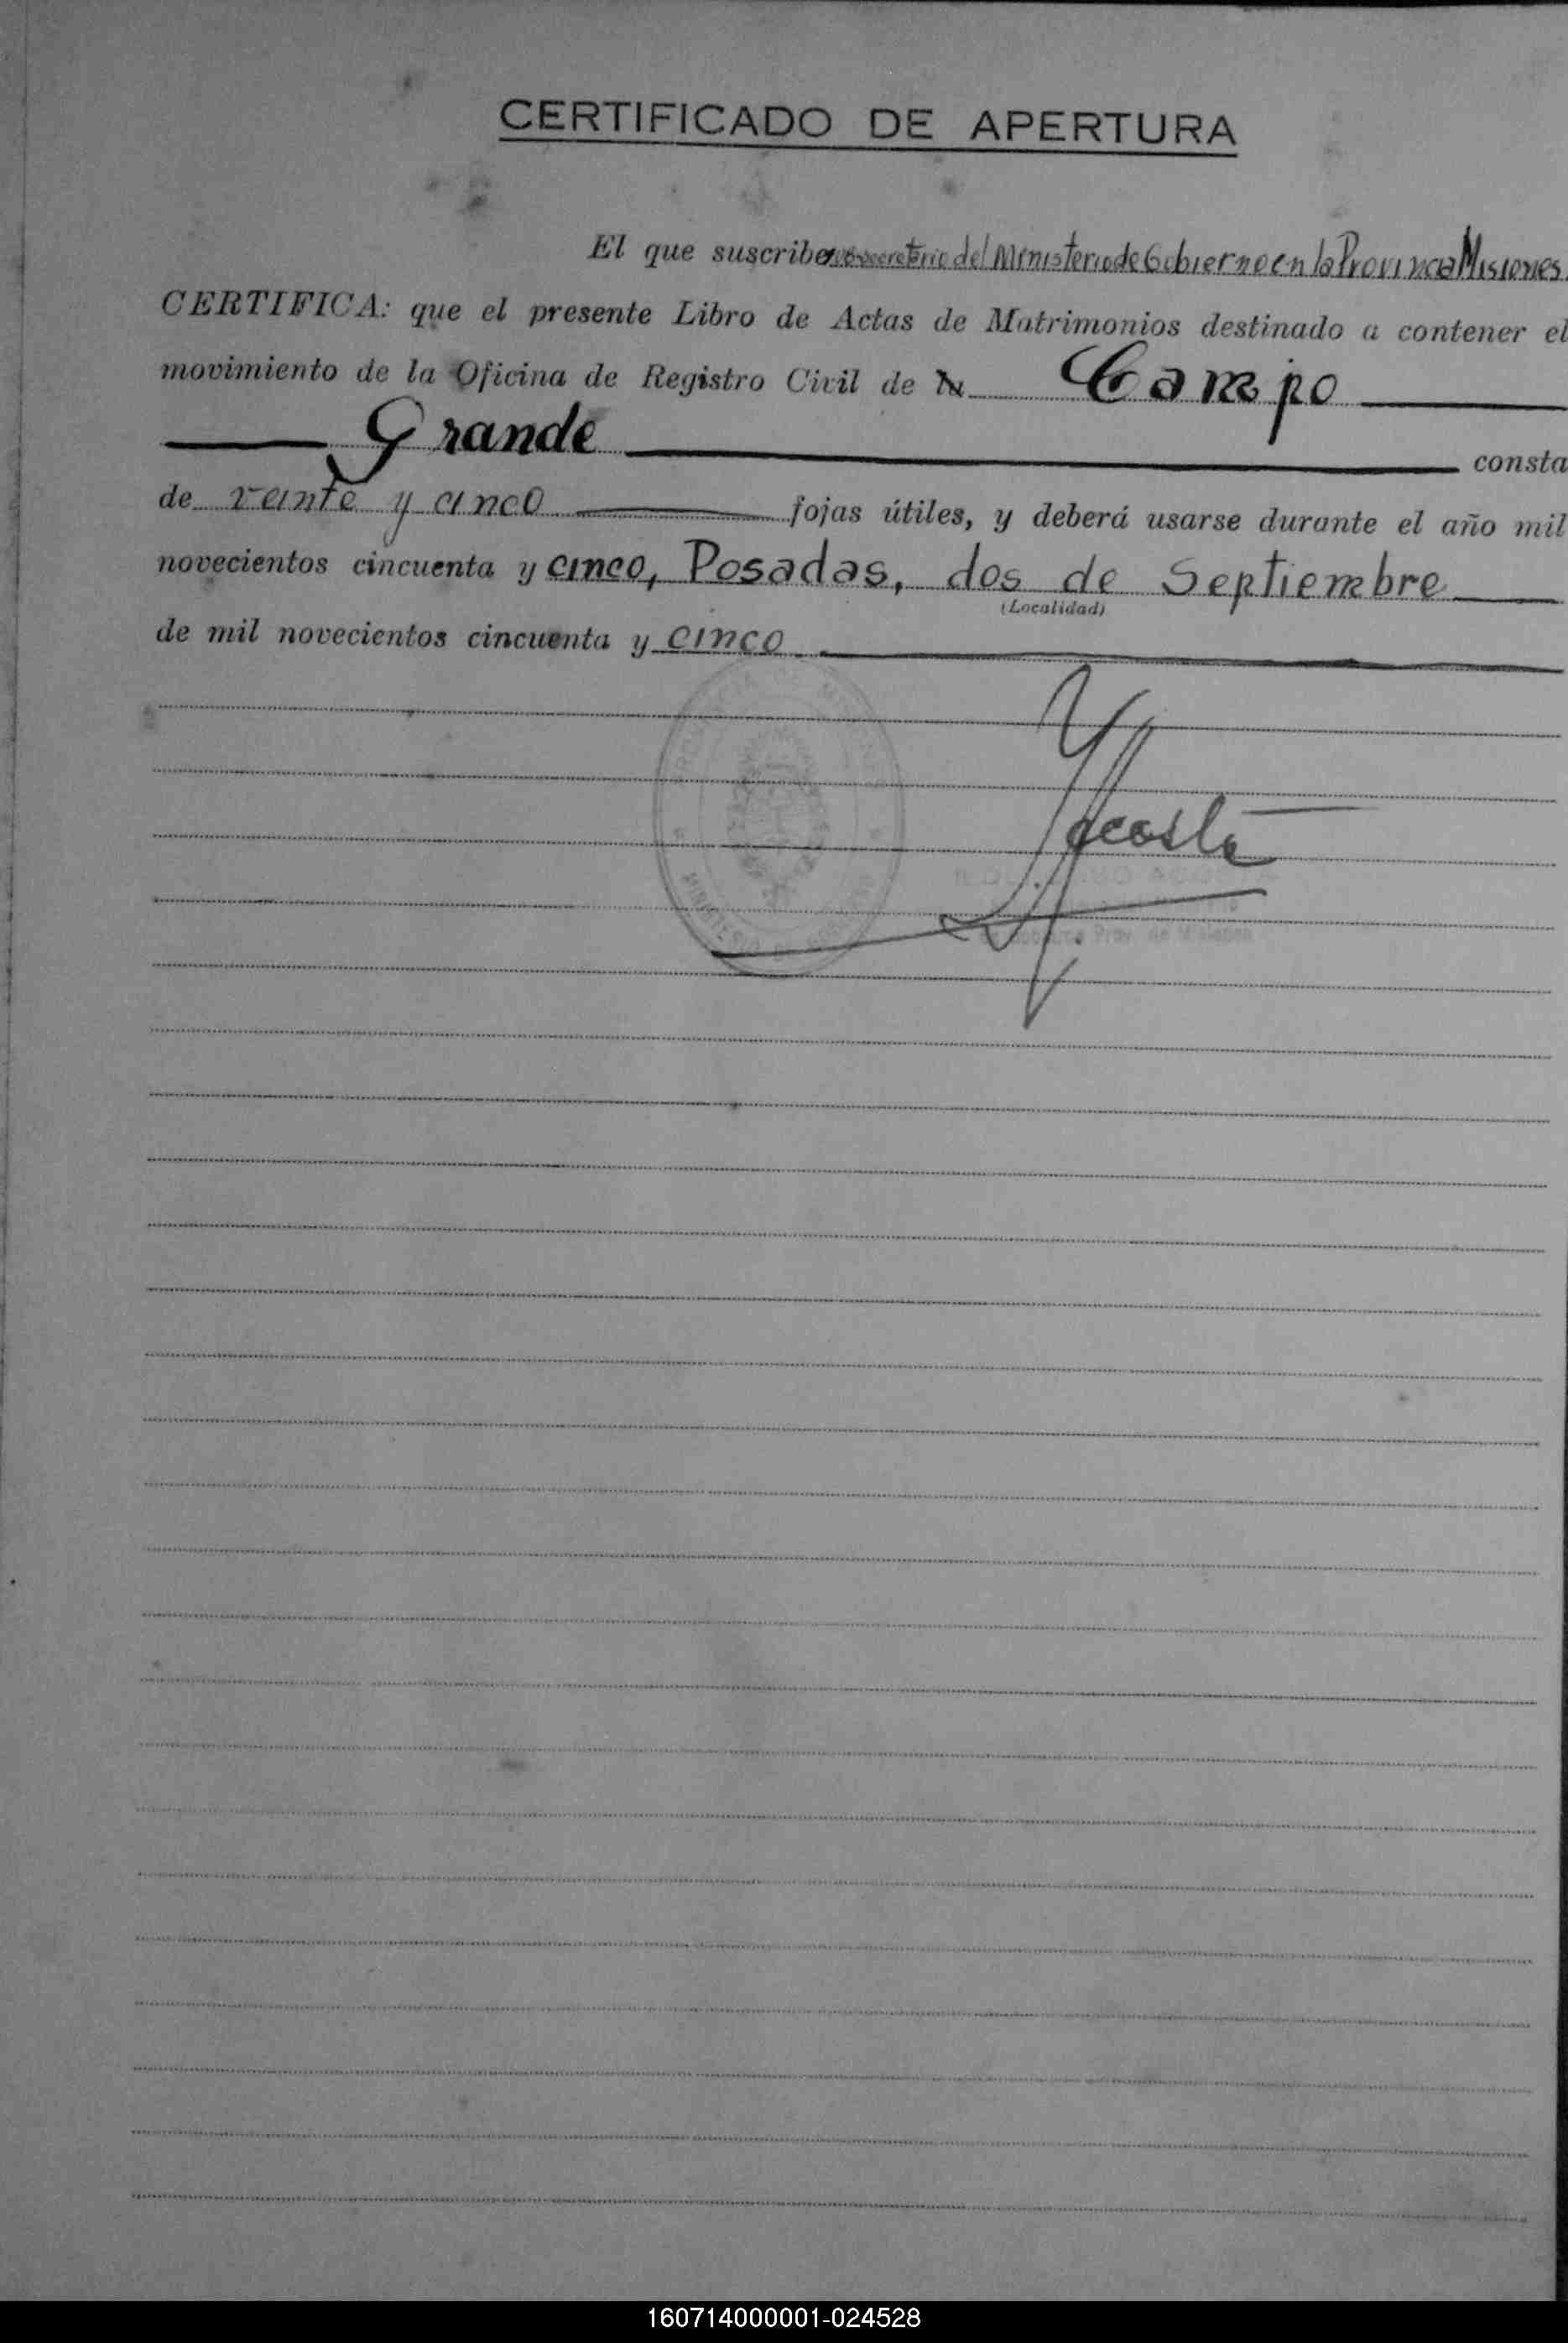 CERTIFICADO DE APERTURA
El que suscribe Subsecretario del Ministerio de Gobierno en la Provincia Misiones.
CERTIFICA: que el presente Libro de Actas de Matrimonios destinado a contener el
movimiento de la Oficina de Registro Civil de Campo
Grande consta
de veinte y cinco fojas útiles, y deberá usarse durante el año mil
novecientos cincuenta y cinco, Posadas, dos de Septiembre
(Localidad)
de mil novecientos cincuenta y cinco
Acosta
Prov. de Misiones
160714000001-024528